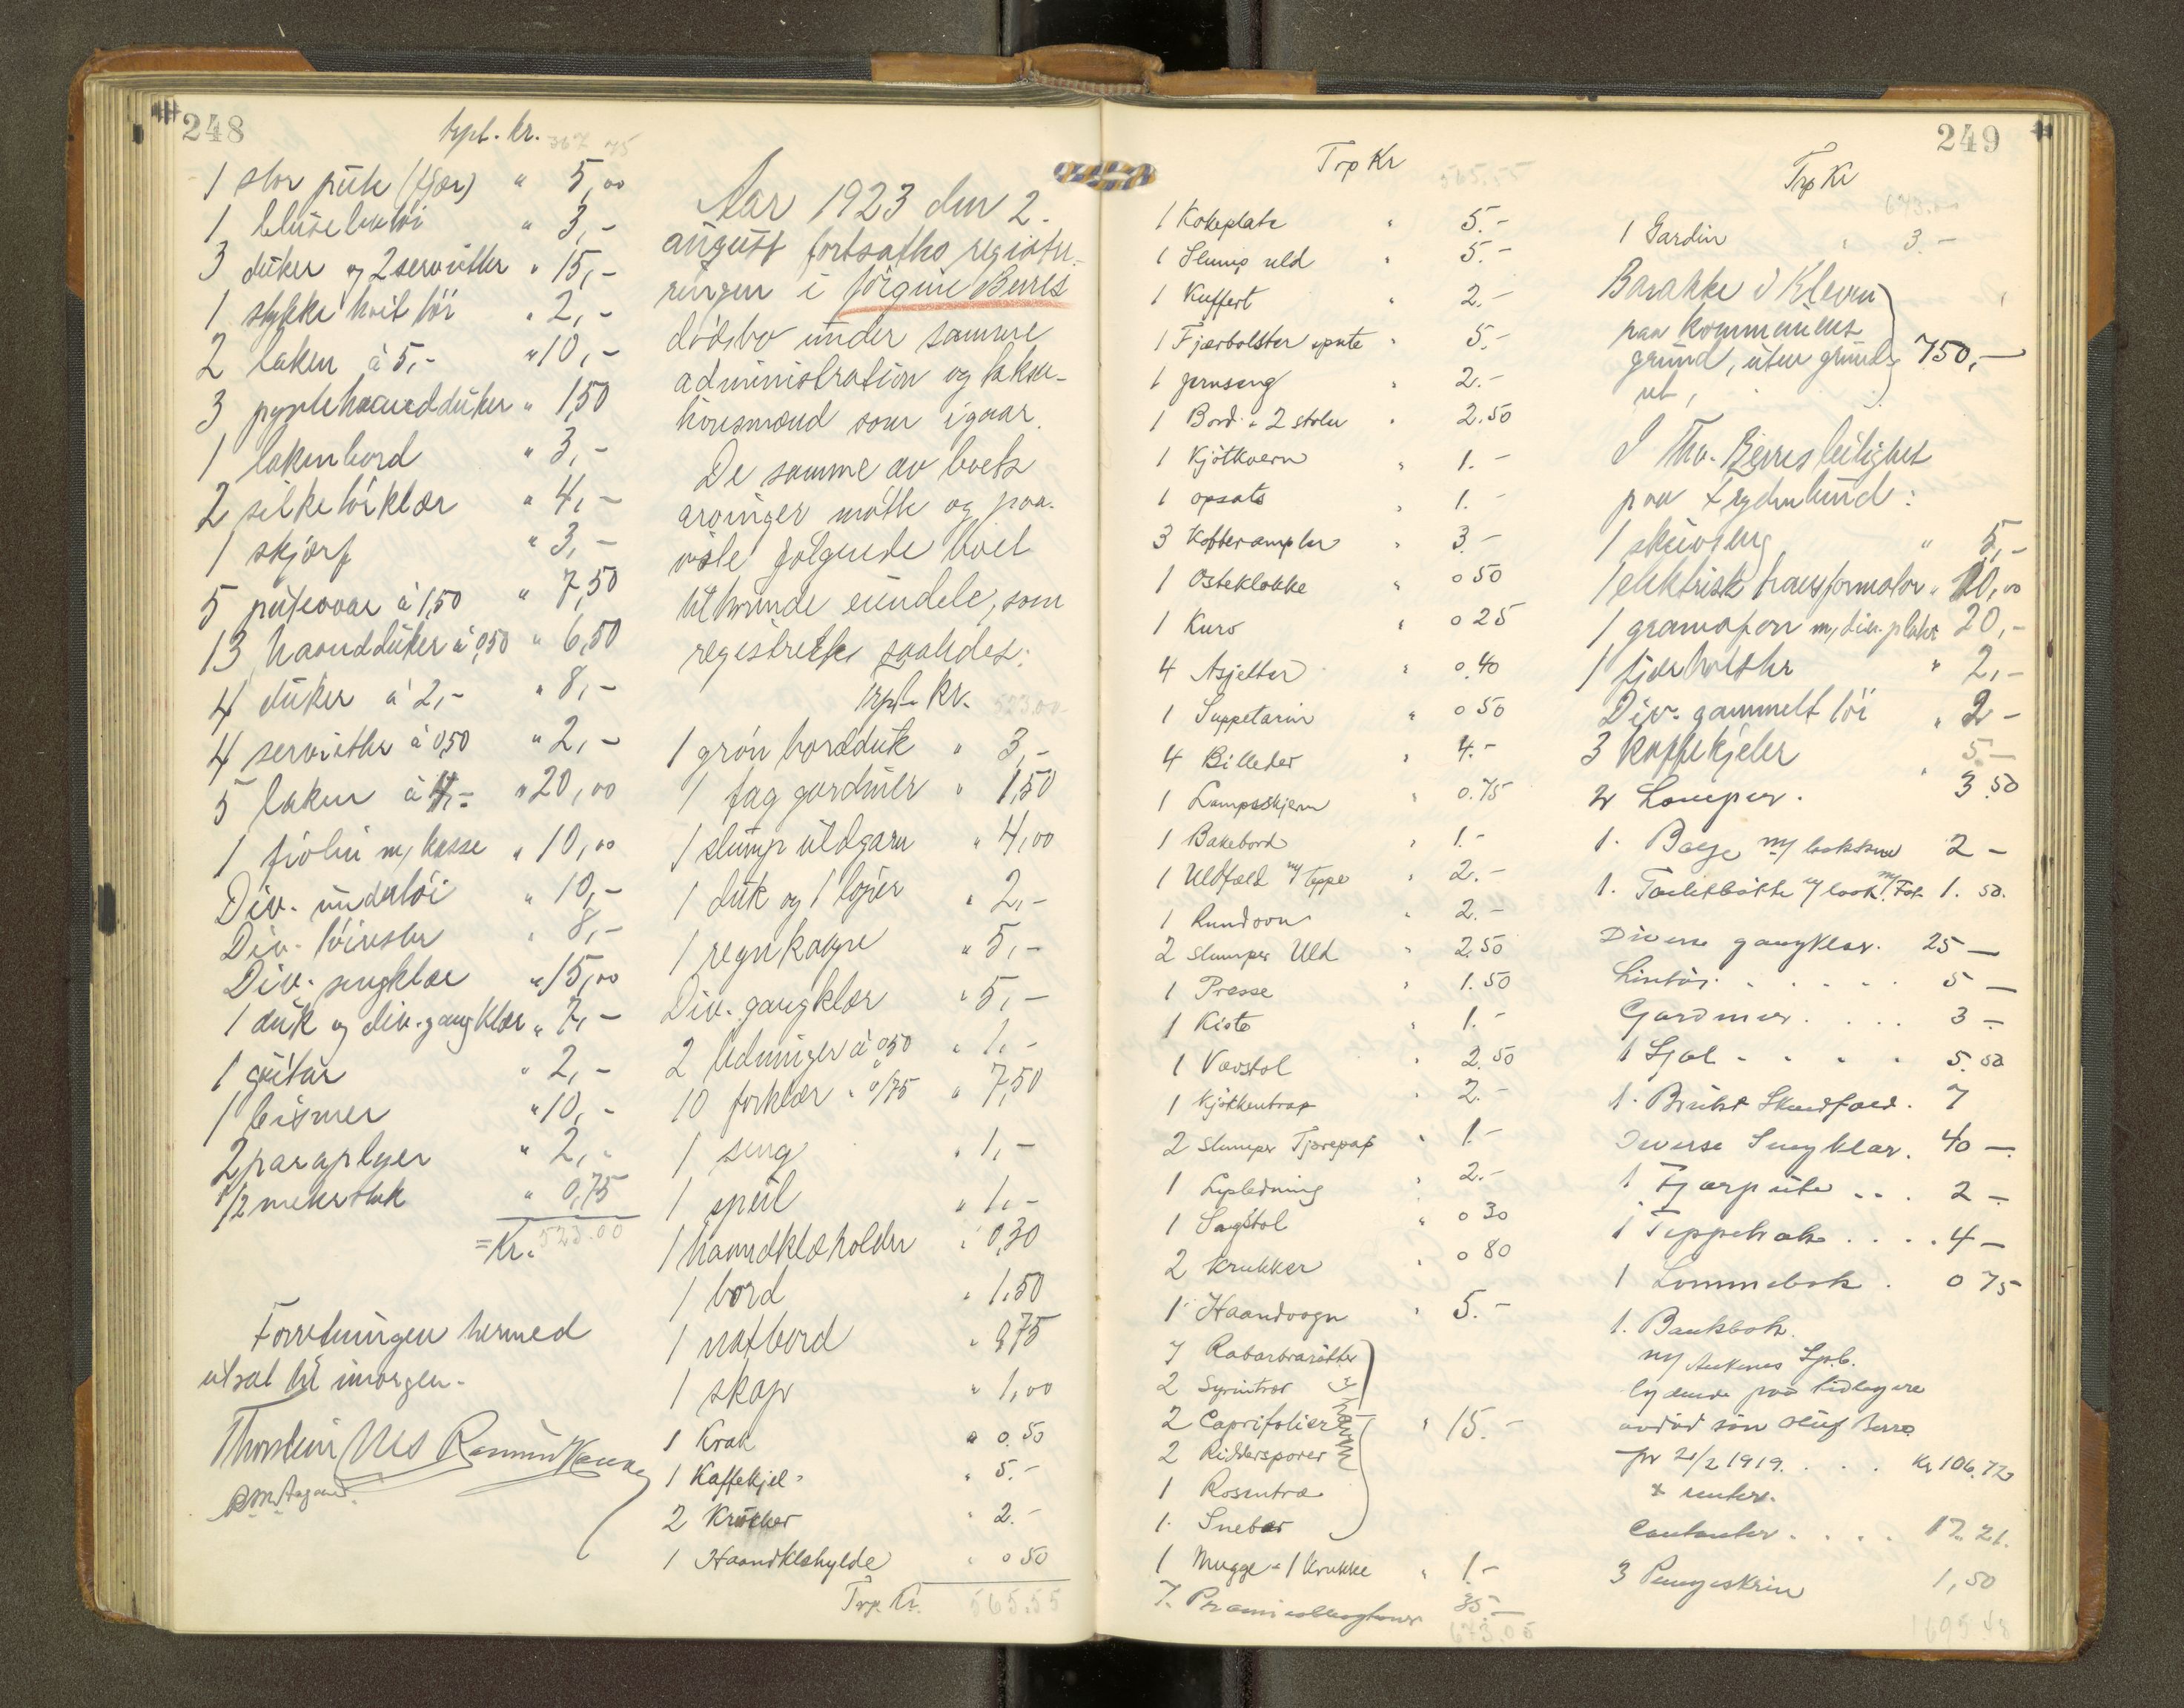 248
trpt. kr. 367 75
1 stor pute (fjær) " 5,00
1 bluselivtøi " 3,-
3 duker og 2 servietter " 15,-
1 stykke hvit tøi " 2,-
2 laken à 5,- " 10,-
3 pyntehaandduker " 1,50
1 lakenbord " 3,-
2 silketørklær " 4,-
1 skjærf " 3,-
5 putevar à 1,50 " 7,50
13 haandduker à 0,50 " 6,50
4 duker à 2,- " 8,-
4 servietter à 0,50 " 2,-
5 laken à 4,- " 20,00
1 fiolin m/ kasse " 10,00
Div. undertøi " 10,-
Div. tøirester " 8,-
Div. sengklær " 15,00
1 duk og div. gangklær " 7,-
1 guitar " 2,-
1 bismer " 10,-
2 paraplyer " 2,-
1/2 meterstok " 0,75
= Kr. 523.00
Forretningen hermed
utsat til imorgen.
Thorstein Nes Rasmus
Aar 1923 den 2.
august fortsattes registre-
ringen i Jørgine Berres
dødsbo under samme
administration og takse-
ringsmænd som igaar.
De samme av boets
arvinger møtte og paa-
viste følgende boet
tilhørende eiendele, som
registrertes saaledes:
Trpt. kr. 523.00
1 grøn bordduk " 3,-
1 fag gardiner " 1,50
1 slump uldgarn " 4,00
1 duk og 1 løper " 2,-
1 regnkaape " 5,-
Div. gangklær " 5,-
2 ledninger à 0,50 " 1,-
10 forklær " 0/75 " 7,50
1 seng " 1,-
1 speil " 1,-
1 haandklæholder " 0,30
1 bord " 1,50
1 natbord " 0,75
1 skap " 1,00
1 Krak " 0.50
1 Kaffekjel " 5.-
2 Krukker " 2.-
1 Haandklshylde " 0 50
Trp. Kr. 565.55
249
Trp Kr 565.55
1 Kokeplate " 5.-
1 Slump uld " 5.-
1 Kuffert " 2.-
1 Fjærbolster o pute " 5.-
1 jernseng " 2.-
1 Bord " 2 stoler " 2.50
1 Kjøtkvern " 1.-
1 opsats " 1.-
3 Kobberampler " 3.-
1 Osteklokke " 0 50
1 Kurv " 0 25
4 Asjetter " 0.40
1 Suppeterin " 0 50
4 Billeder " 4.-
1 Lampeskjerm " 0.75
1 Bakebord " 1.-
1 Uldfæld m/ teppe " 2.-
1 Rundovn " 2.-
2 slumper Uld " 2.50
1 Presse " 1.50
1 Kiste " 1.-
1 Vævstol " 2.50
1 Kjøkkentrap " 2.-
2 slumper Tjærepap " 1.-
1 Lysledning " 2.-
1 Sagstol " 0 30
2 Krukker " 0 80
1 Haandvogn " 5.-
7 Rabarbrarøtter
2 Syrintrær
2 Caprifolier " 15.-
2 Riddersporer
1 Rosentræ
1 Snebær
i haven
1 Mugge " 1 Krukke " 1.-
7. Præmieobligationer 35.-
673.00
Trp Kr 673.00
1 Gardin " 3.-
Barakke i Kleven
paa kommunens
grund, uten grund-
ret, 750,-
I Thv. Berres leilighet
paa Frydenlund:
1 skuvseng " 5,-
1 elektrisk transformator " 10,00
1 gramofon m/ div. plater 20,-
1 fjærbolster " 2,-
Div. gammelt tøi " 2-
3 Kaffekjeler " 5-
2 Lamper. 3.50
1. Balje m/ 2-
1. Toiletbøtte m/ lok m/ Fat 1.50.
Diverse gangklær. 25-
Lintøi. . . . . 5-
Gardiner. . . . 3-
1 Sjal . . . . 5.50
1. Brukt Skindfæld. 7
Diverse Sengklær. 40-
1 Fjærpute . . . 2-
1 Teppehak . . . . 4-
1 Lommebok . 0 75
1. Bankbok.
m/ Ankenes Spb.
lydende paa tidligere
avdød søn Oluf Berre
pr 21/2 1919. . . . Kr 106.72
+ renter.
Contanter . . . . 17.21.
3 Pengeskrin 1,50
1695.48